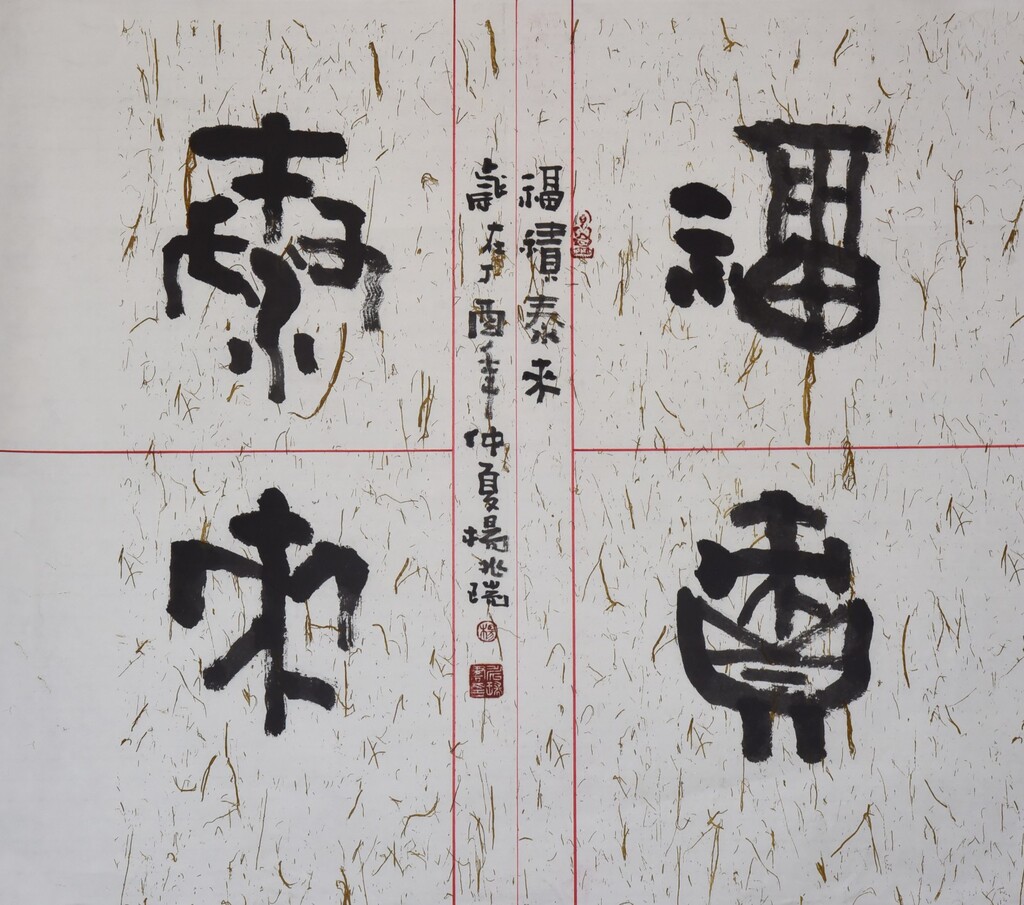 福
積
泰
來
福積泰來
歲在丁酉年仲夏楊兆瑞
楊